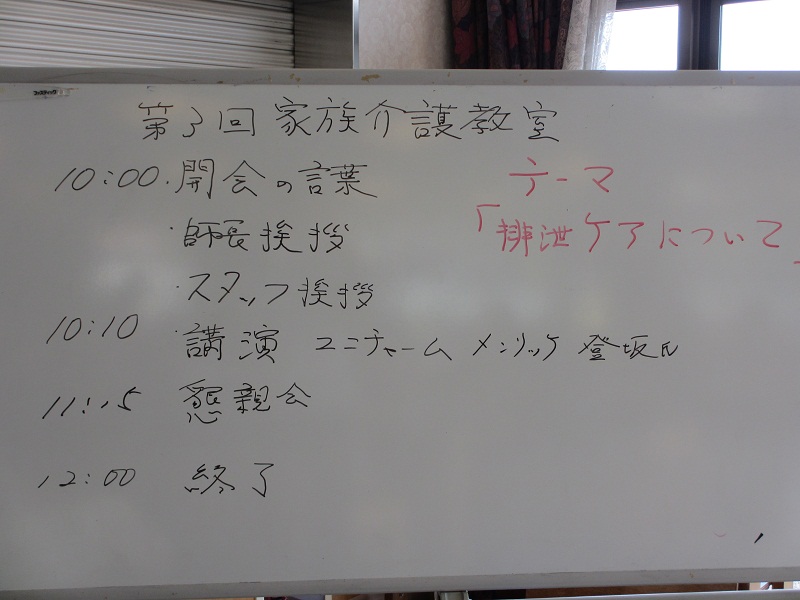 第3回 家族介護教室
10:00 ・開会の言葉
・師長挨拶
・スタッフ挨拶
10:10 ・講演 ユニチャーム メンリッケ 登坂氏
11:15 懇親会
12:00 終了
テーマ
「排泄ケアについて」